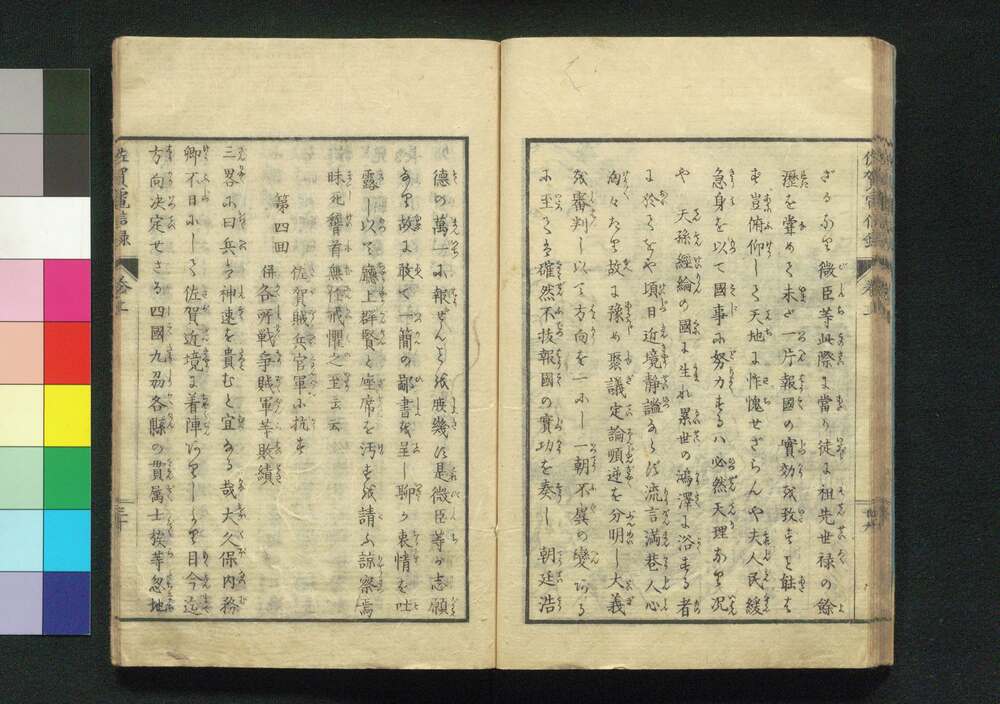 ざるなり微臣等此際に當り徒に祖先世禄の餘
瀝を甞めて未だ一片報國の實効を致すを能は
ず豈俯仰して天地に怍愧せざらんや夫人民緩
急身を以て國事に努力するハ必然天理なり况
や 天孫經綸の國に生れ累世の鴻澤に浴する者
に於てをや項日近境静謐ならず流言滿巷人心
恟々たり故に豫め衆議定論順逆を分明し大義
を審判し以て方向を一にし一朝不虞の變ある
に至ては確然不抜報國の實功を奏し 朝廷浩
佐賀電信録
德の萬一に報ぜんとを庶幾す是微臣等が志願
なり故に敢て一簡の鄙書を呈し聊か衷情を吐
露し以て廳上群賢と座席を汚すを請ふ諒察焉
昧死稽首無任戒懼之至云云
第四回 佐賀賊兵官軍に抗す
併各所戦争賊軍等敗績
三畧に曰兵は神速を貴むと宜なる哉大久保内務
卿不日にして佐賀近境に着陣ありしより目今迄
方向决定せざる四國九刕各縣の貫属士族等忽地
佐賀電信録